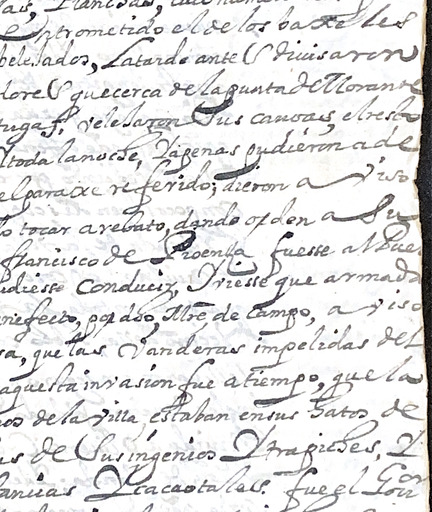 entrometido el de los baxeles
belelados, La tarde antes divisaron
dores que cerca de la punta de Morante
tugas, velelaron sus canoas, el resto
toda la noche, Y apenas pudieron a de
el paraxe referido; dieron a viso
lo tocar a rebato, dando orden a Su
francisco de Proenla fuesse al Pue
udiesse Conducir, Y viesse que armada
en efecto, pordo, Mre de Campo, a viso
sa, que las Vanderas impelidas del
aquesta invasion fue a tiempo, que la
nos de la villa, estaban en sus hatos de
as de Sus ingenios Y trapiches, Y
tancias Y cacaotales. fue el Gou